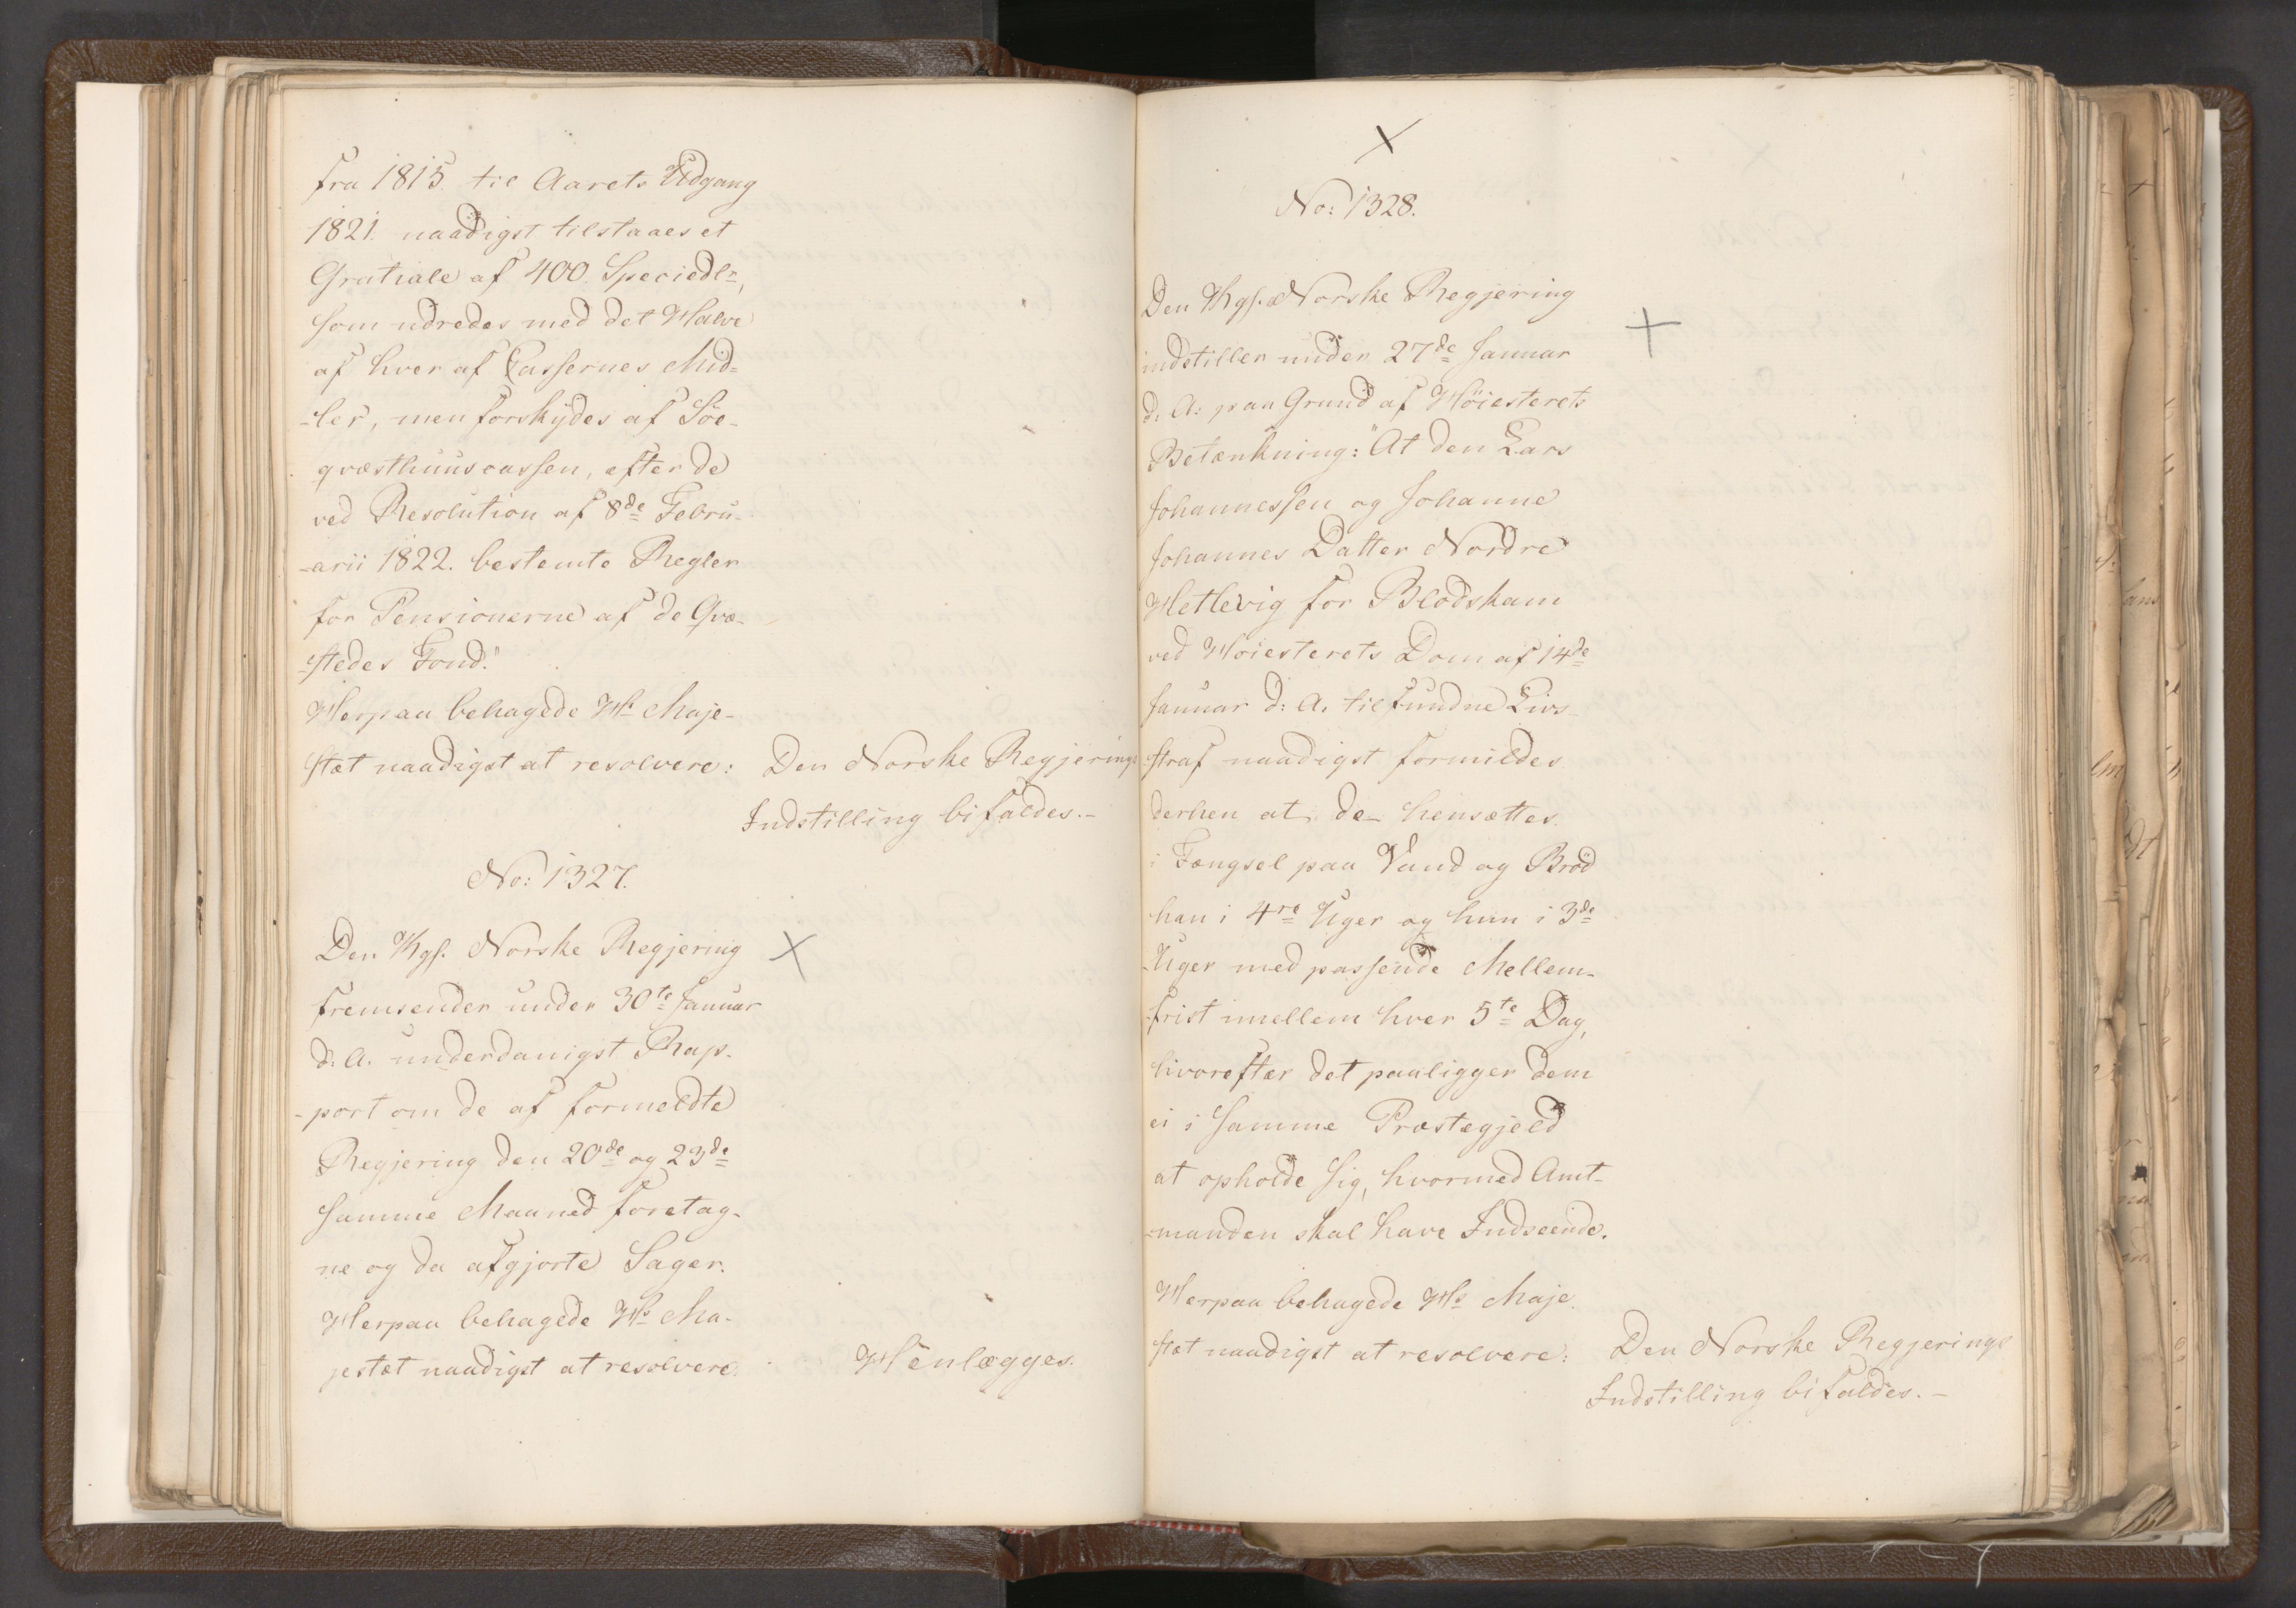 fra 1815. til Aarets Udgang
1821. naadigst tilstaaes et
Gratiale af 400 Speciedlr,
som udredes med det Halve
af hver af Cassernes Mid-
-ler, men forskydes af Söe-
qvæsthuuscassen, efter de
ved Resolution af 8de Febru-
-arii 1822. bestemte Regler
for Pensionerne af de Qvæ-
-stedes Fond."
Herpaa behagede Hs Maje-
stæt naadigst at resolvere:
Den Norske Regjerings
Indstilling bifaldes.-
No: 1327.
Den Kgs. Norske Regjering
X
fremsender under 30te Januar
d: A. underdanigst Rap-
-port om de af formeldte
Regjering den 20de og 23de
samme Maaned foretag-
ne og da afgjorte Sager.
Herpaa behagede Hs Ma-
jestæt naadigst at resolvere:
Henlægges.
X
No: 1328.
Den Kgs. Norske Regjering
X
indstiller under 27de Januar
d: A: paa Grund af Höiesterets
Betænkning: "At den Lars
Johannessen og Johanne
Johannes Datter Nordre
Hetlevig for Blodskam
ved Höiesterets Dom af 14de
Januar d: A. tilfundne Livs-
straf naadigst formildes
derhen at de hensættes
i Fængsel paa Vand og Bröd
han i 4re Uger og hun i 3de
Uger med passende Mellem-
-frist imellem hver 5te Dag,
hvorefter det paaligger dem
ei i samme Præstegjeld
at opholde sig, hvormed Amt-
-manden skal have Indseende.
Herpaa behagede Hs Maje-
stæt naadigst at resolvere:
Den Norske Regjerings
Indstilling bifaldes.-